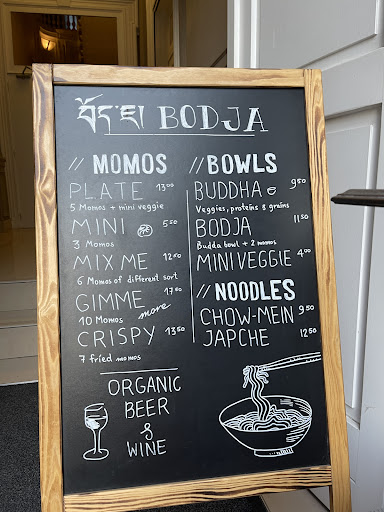 བོད་ཇ། BODJA
// MOMOS
PLATE 13.00
5 Momos + mini veggie
MINI 5.50
3 Momos
MIX ME 12.50
6 Momos of different sort
GIMME 17.50
10 Momos more
CRISPY 13.50
7 fried momos
// BOWLS
BUDDHA 9.50
Veggies, proteins & grains
BODJA 11.50
Budda bowl + 2 momos
MINI VEGGIE 4.00
// NOODLES
CHOW-MEIN 9.50
JAPCHE 12.50
ORGANIC
BEER
&
WINE